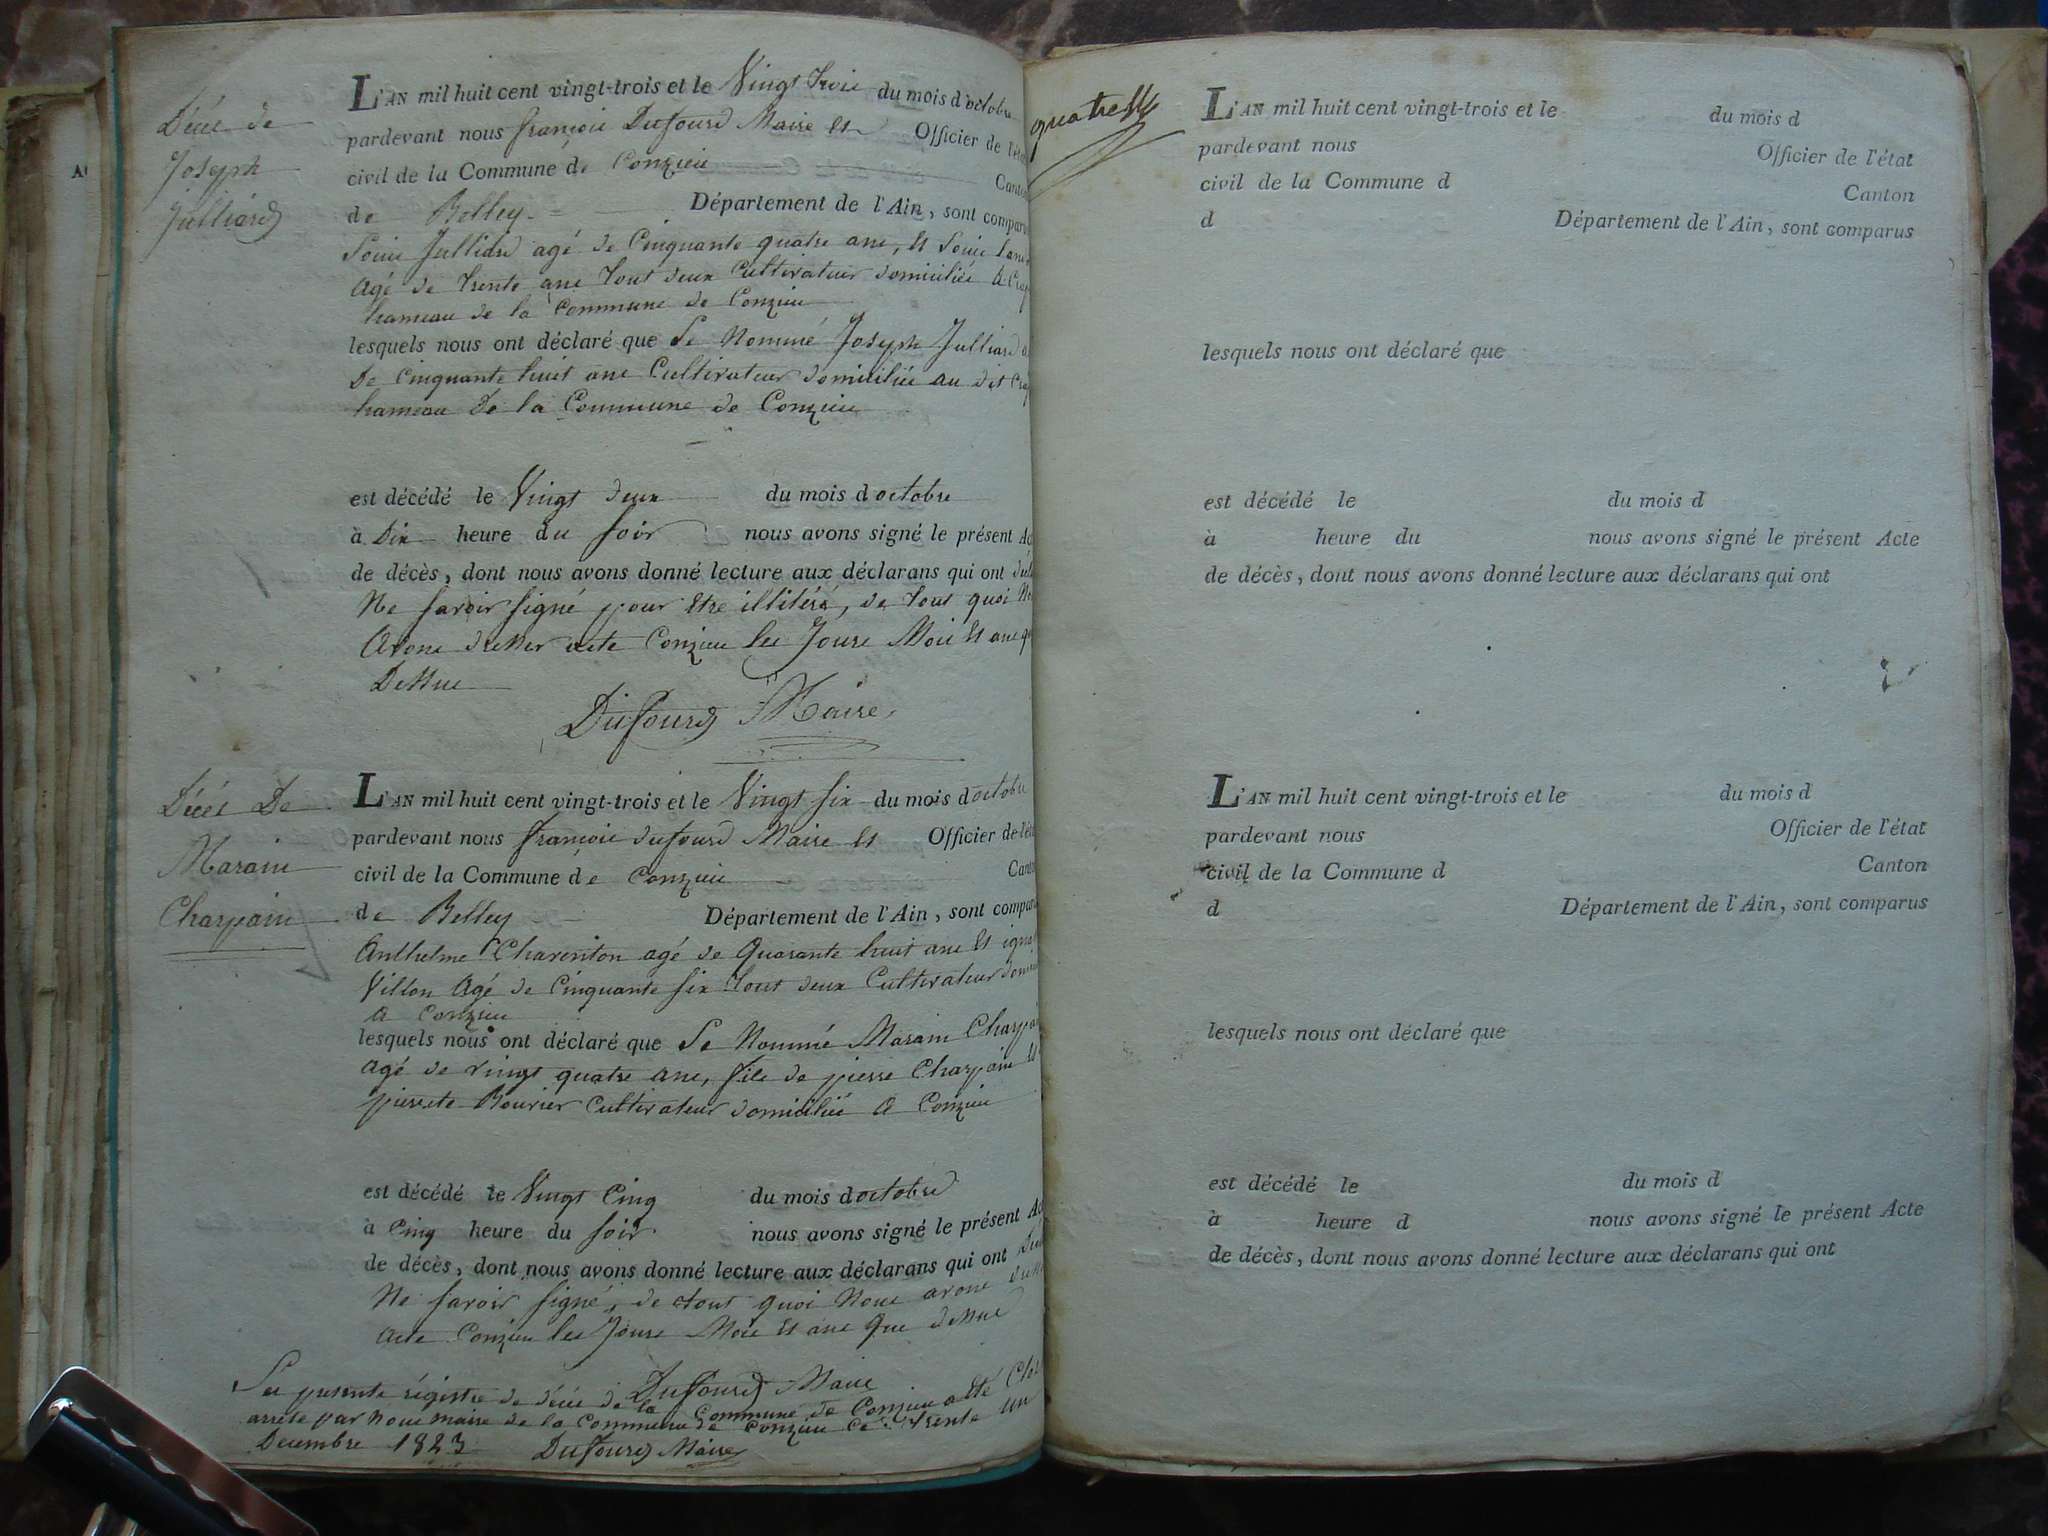 Décés de
Joseph
Julliard
L'AN mil huit cent vingt-trois et le Vingt trois du mois d'octobre
pardevant nous françois Dufourd Maire et Officier de l'état
civil de la Commune de Conzieu Canton
de Belley Département de l'Ain, sont comparu
Julliard agé de Cinquante quatre ans, et
Agé de trente ans tout deux Cultivateur domiciliés A
hameau de la Commune de Conzieu
lesquels nous ont déclaré que Le Nommé Joseph Julliard
De Cinquante huit ans Cultivateur domiciliée au dit
hameau de la Commune de Conzieu
est décédé le Vingt deux du mois d octobre
à Dix heure du soir nous avons signé le présent Ac
de décès, dont nous avons donné lecture aux déclarans qui ont
Ne savoir signé pour être illitéré, de tout quoi
Avons dresser acte Conzieu les Jours Mois et ans que
Dessus
Dufourd Maire
Décés De
Marain
Charpain
L'AN mil huit cent vingt-trois et le Vingt six du mois d octobre
pardevant nous françois dufourd Maire et Officier de l'éta
civil de la Commune de Conzieu Canto
de Belley Département de l'Ain, sont compar
Anthelme Charenton agé de Quarante huit ans et
Villon Agé de Cinquante six tout deux Cultivateur
A Conzieu
lesquels nous ont déclaré que Le Nommé Marain Charpain
agé de vingt quatre ans, fils de pierre Charpain et
pierrete Bourier Cultivateur domiciliée A Conzieu
est décédé le Vingt Cinq du mois d octobre
à Cinq heure du soir nous avons signé le présent Ac
de décès, dont nous avons donné lecture aux déclarans qui ont
Ne savoir signé, de tout quoi Nous avons
Acte Conzieu les Jours Mois et ans Que dessus
Dufourd Maire
Le presente régistre de décés de la Commune de Conzieu a été Clos
arrêté par nous maire de la Commune de Conzieu Ce trente un
Decembre 1823 Dufourd Maire
L'AN mil huit cent vingt-trois et le du mois d
pardevant nous Officier de l'état
civil de la Commune d Canton
d Département de l'Ain, sont comparus
lesquels nous ont déclaré que
est décédé le du mois d
à heure du nous avons signé le présent Acte
de décès, dont nous avons donné lecture aux déclarans qui ont
L'AN mil huit cent vingt-trois et le du mois d
pardevant nous Officier de l'état
civil de la Commune d Canton
d Département de l'Ain, sont comparus
lesquels nous ont déclaré que
est décédé le du mois d
à heure d nous avons signé le présent Acte
de décès, dont nous avons donné lecture aux déclarans qui ont